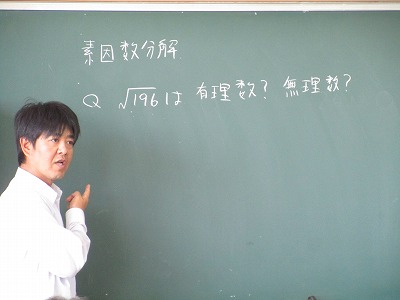 素因数分解
Q √196 は 有理数? 無理数?